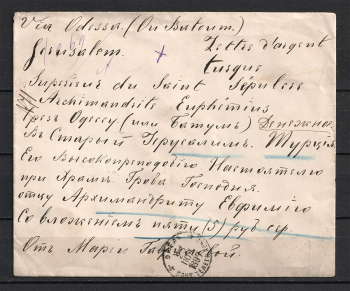 Via Odessa. (Ou Batoum.)
Jerusalem. Lettre d'argent
turque
Superieur du Saint Sépulcre
Archimandrite Euphemius
Чрезъ Одессу (или Батумъ) Денежное.
Въ Старый Іерусалимъ. Турція.
Его Высокопреподобію Настоятелю
при Храмѣ Гроба Господня.
отцу Архимандриту Евфимію
Со вложеніемъ пяти (5) руб. сер.
Отъ Маріи